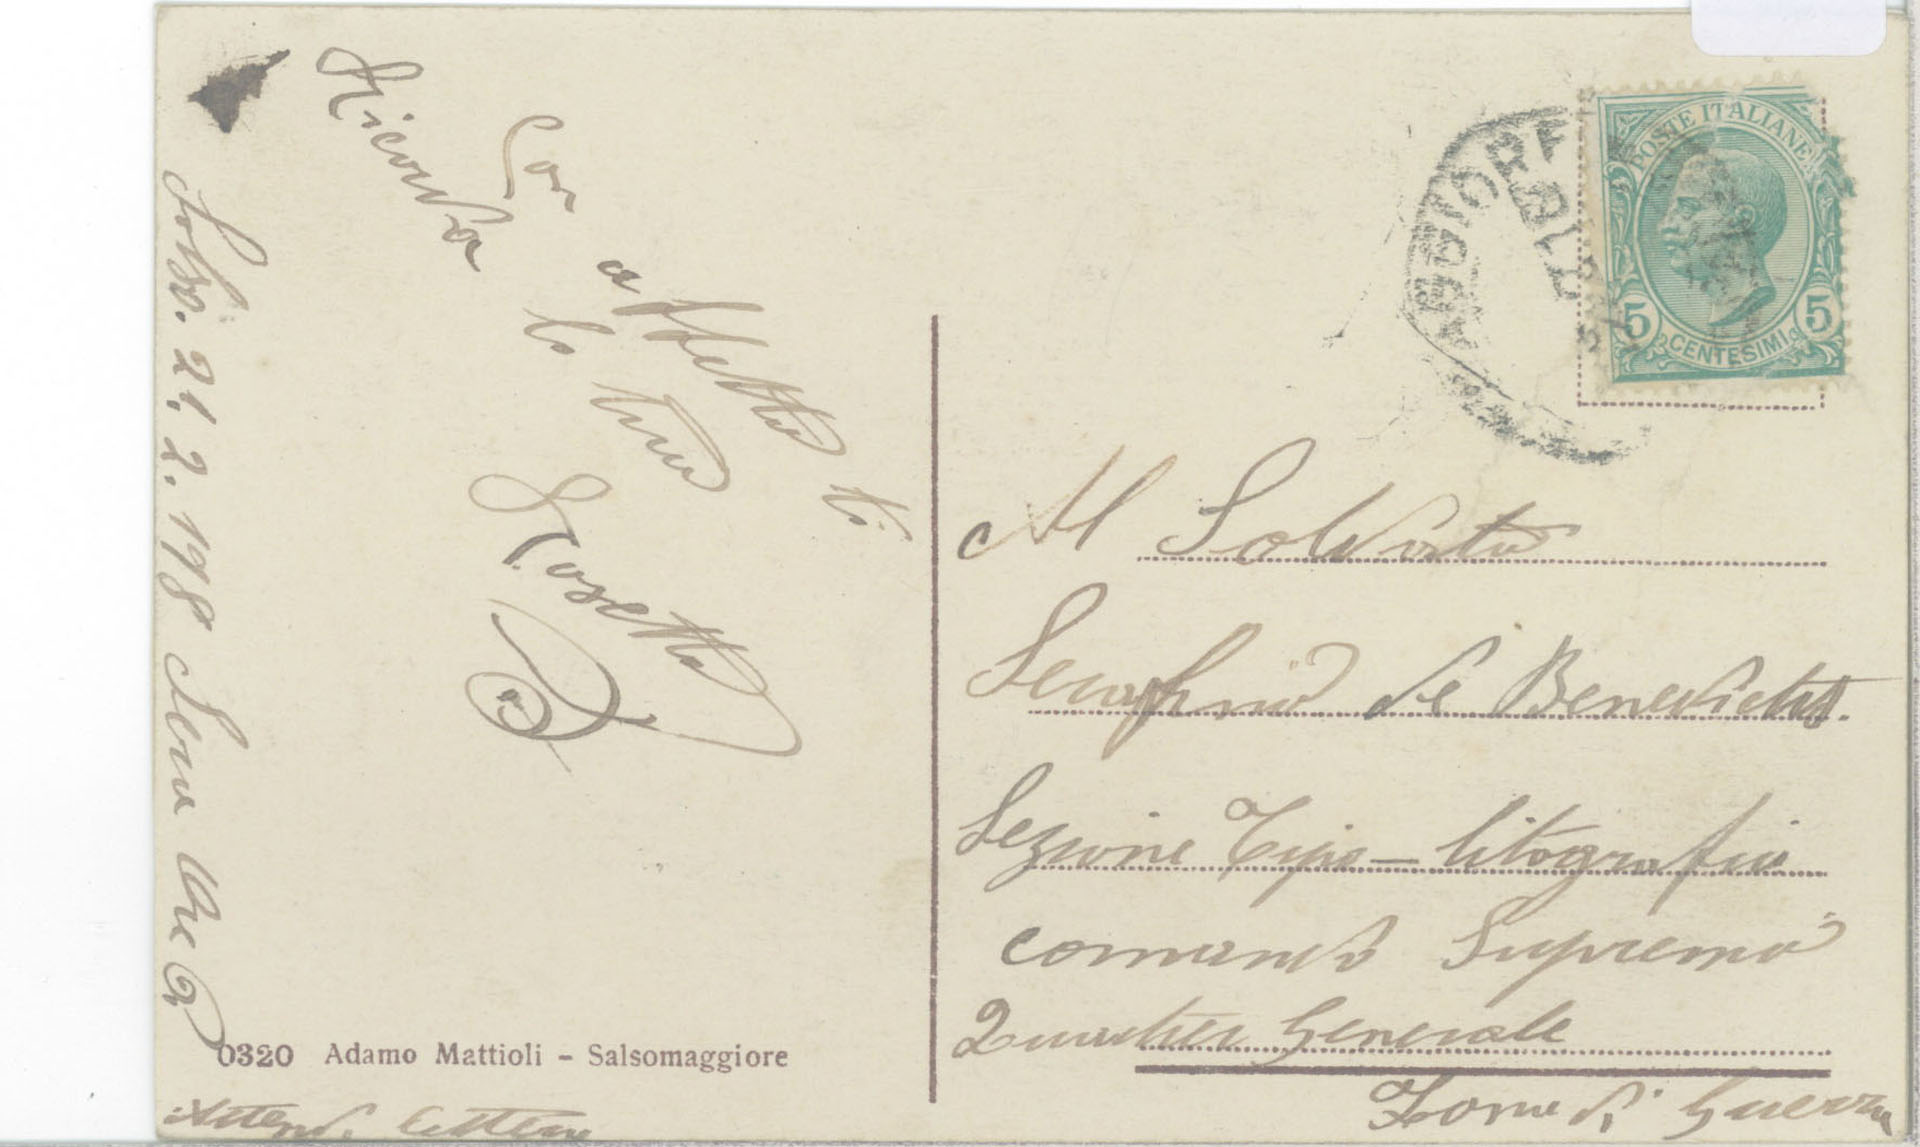 Salso. 21. 2. 1918 Sera Ore 9
Con affetto ti
Ricorda
la tua
Rosetta
0320 Adamo Mattioli - Salsomaggiore
Attendi lettera
POSTE ITALIANE
5 CENTESIMI 5
AGGIORE
Al Soldato
Serafino de Benedictis.
Sezione Tipo-litografia
comando Supremo
Quartier Generale
Zona di Guerra